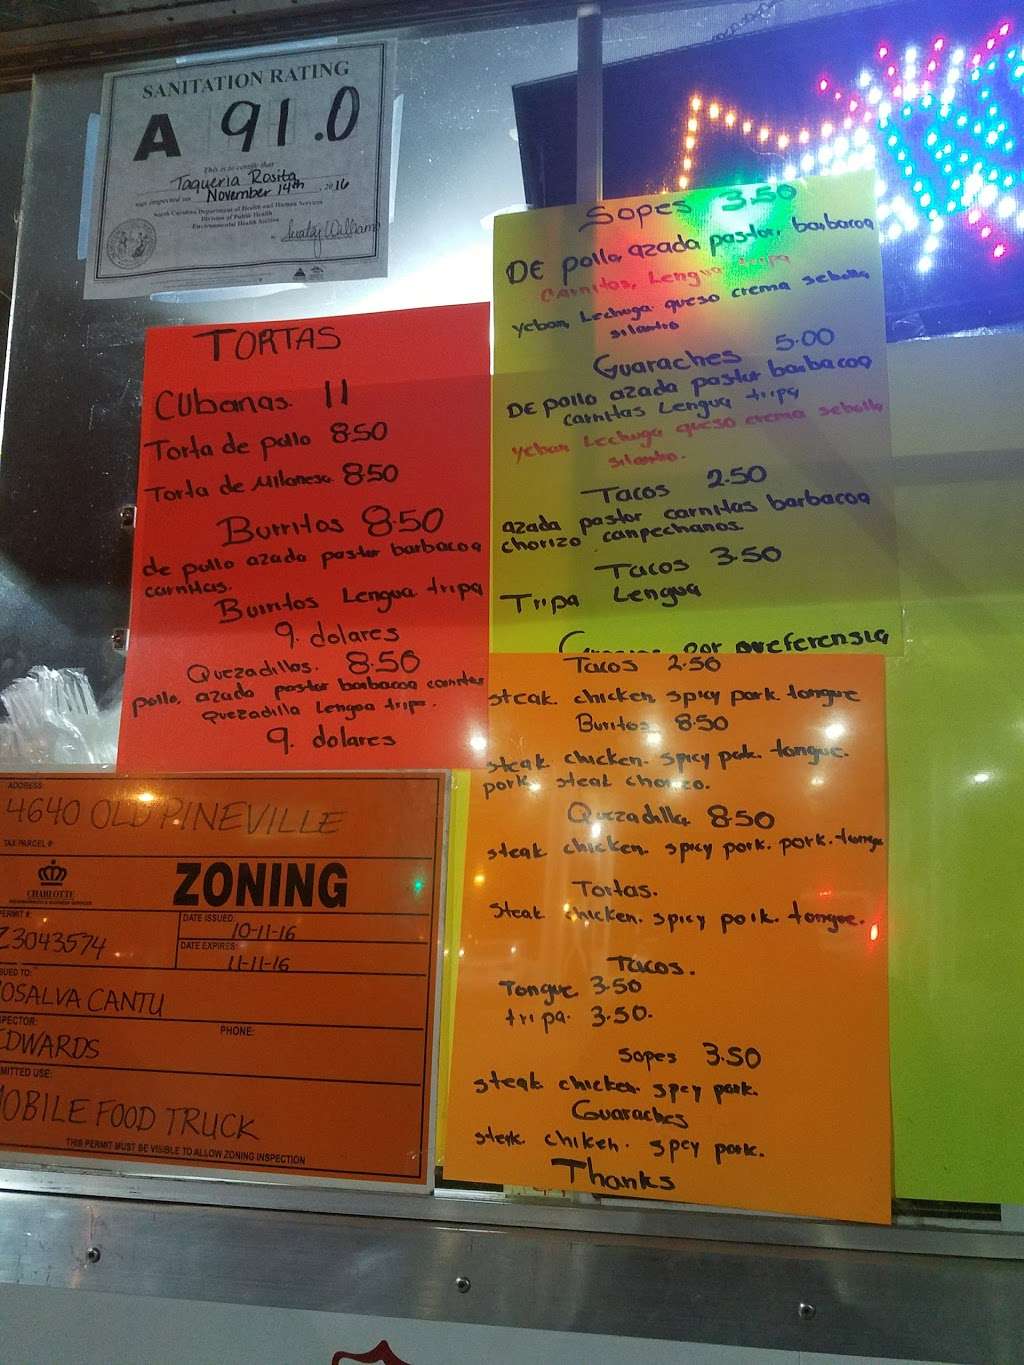 SANITATION RATING
A 91.0
This is to certify that
Taqueria Rosita
was inspected on November 14th, 2016
North Carolina Department of Health and Human Services
Division of Public Health
Environmental Health Section
TORTAS
Cubanas. 11
Torta de pollo 8.50
Torta de Milanesa 8.50
Burritos 8.50
de pollo azada pastor barbacoa
carnitas.
Burritos Lengua tripa
9. dolares
Quezadillas. 8.50
pollo, azada pastor barbacoa carnitas
Quezadilla Lengua tripa.
9. dolares
Sopes 3.50
DE pollo, azada pastor, barbacoa
Carnitas, Lengua, tripa
yeban, Lechuga. queso crema sebolla,
silantro
Guaraches 5.00
DE pollo azada pastor barbacoa
carnitas Lengua tripa
yeban Lechuga queso crema sebolla,
silantro.
Tacos 2.50
azada pastor carnitas barbacoa
chorizo canpechanos.
Tacos 3.50
Tripa Lengua
por preferensia
Tacos 2.50
steak. chicken, spicy pork. tongue
Buritos 8.50
steak chicken. spicy pok. tongue.
pork. steak chorizo.
Quezadilla 8.50
steak chicken. spicy pork. pork. tongue
Tortas.
Steak chicken. spicy pork. tongue.
Tacos.
Tongue 3.50
tripa. 3.50.
Sopes 3.50
steak chicken. spcy pork.
Guaraches
steak. chiken. spcy pork.
Thanks
ADDRESS:
4640 OLD PINEVILLE
TAX PARCEL #:
CHARLOTTE
ZONING
PERMIT #:
Z3043574
DATE ISSUED:
10-11-16
DATE EXPIRES:
11-11-16
SUED TO:
OSALVA CANTU
SPECTOR:
PHONE:
EDWARDS
MITTED USE:
MOBILE FOOD TRUCK
THIS PERMIT MUST BE VISIBLE TO ALLOW ZONING INSPECTION